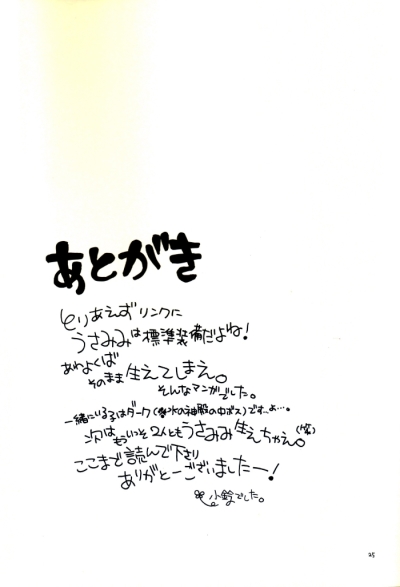 あとがき
とりあえずリンクに
うさみみは標準装備だよね!
あわよくば
そのまま生えてしまえ。
そんなマンガでした。
一緒にいる子はダーク(水の神殿の中ボス)です、よ…。
次はもういっそ2人ともうさみみ生えちゃえ。
ここまで読んで下さり
ありがとーございましたー!
小鈴でした。
25